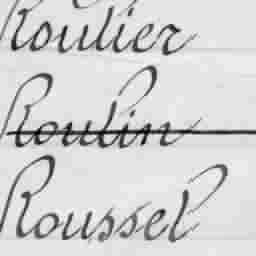 Roulier
Roulin
Roussel